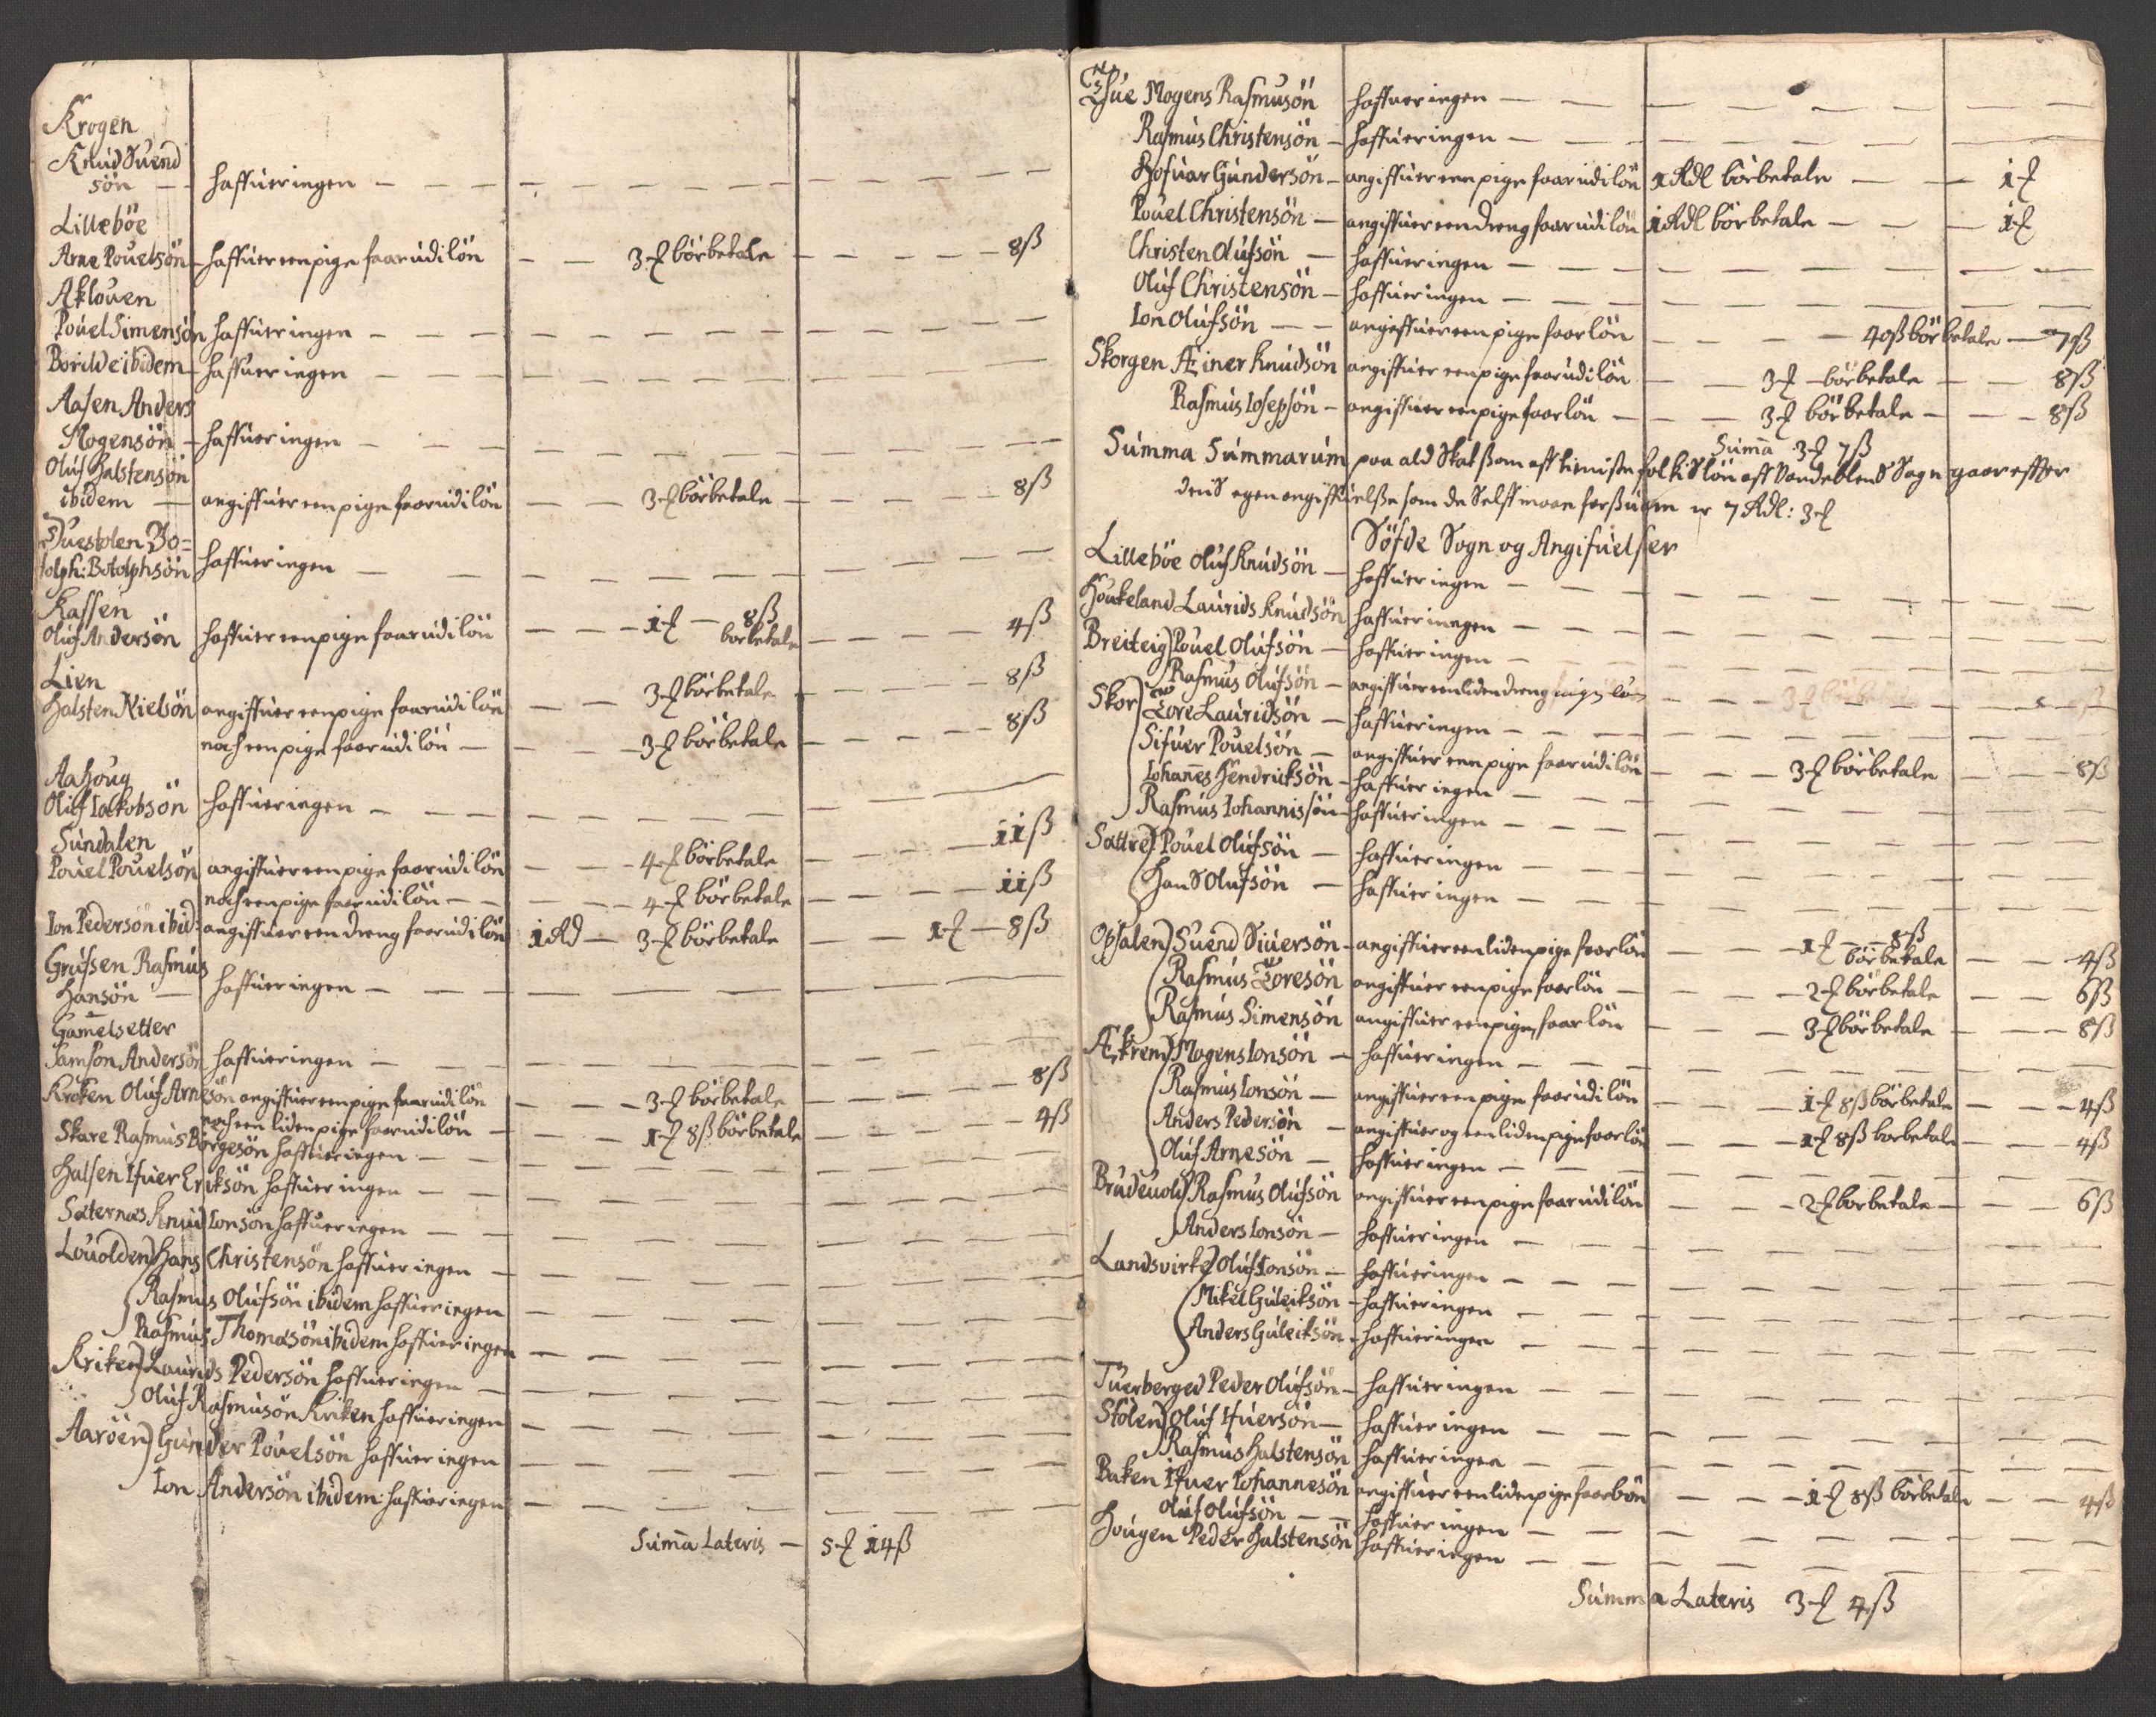 Krogen
Knud Suend
sön — haffuer ingen
Lilleböe
Arne Pouelsön haffuer een pige faar udi lön — 3 ℳ bör betale — 8 ß
Aklouen
Pouel Simensön haffuer ingen
Borild ibidem haffuer ingen
Aasen Anders
Mogensön haffuer ingen
Oluf Halstensön
ibidem — angiffuer een pige faar udi lön — 3 ℳ bör betale — 8 ß
Duestolen Bo=
tolph: Botolphsön haffuer ingen
Kassen
Oluf Andersön haffuer een pige faar udi lön — 1 ℳ — 8 ß bör betale — 4 ß
Lien
Halsten Nielsön angiffuer een pige faar udi lön — 3 ℳ bör betale — 8 ß
noch een pige faar udi lön — 3 ℳ bör betale — 8 ß
Aahoug
Oluf Iackobsön haffuer ingen
Sundalen
Pouel Pouelsön angiffuer een pige faar udi lön — 4 ℳ bör betale — 11 ß
noch een pige faar udi lön — 4 ℳ bör betale — 11 ß
Ion Pedersön ibid: angiffuer een dreng faar udi lön 1 Rd — 3 ℳ bör betale — 1 ℳ — 8 ß
Grufsen Rasmus
Hansön — haffuer ingen
Gamelsetter
Samson Andersön haffuer ingen
Kroken Oluf Arnesön angiffuer een pige faar udi lön — 3 ℳ bör betale — 8 ß
noch een liden pige faar udi lön — 1 ℳ 8 ß bör betale — 4 ß
Skare Rasmus Börgesön haffuer ingen
Halsen Ifuer Eriksön haffuer ingen
Säternes Knud Ionsön haffuer ingen
Louolden) Hans Christensön haffuer ingen
Rasmus Olufsön ibidem haffuer ingen
Rasmus Thomasön ibidem haffuer ingen
Kriken) Laurids Pedersön haffuer ingen
Oluf Rasmusön Kriken haffuer ingen
Aaröen) Gunder Pouelsön haffuer ingen
Ion Andersön ibidem haffuer ingen
Suma Lateris — 5 ℳ 14 ß
Hue Mogens Rasmusön haffuer ingen
Rasmus Christensön — haffuer ingen
Hofuar Gundersön — angiffuer een pige faar udi lön 1 Rdl bör betale — 1 ℳ
Pouel Christensön — angiffuer een dreng faar udi lön 1 Rdl bör betale — 1 ℳ
Christen Olufsön — haffuer ingen
Oluf Christensön — haffuer ingen
Ion Olufsön — angiffuer een pige faar lön — 40 ß bör betale — 7 ß
Skorgen Æiner Knudsön angiffuer een pige faar udi lön — 3 ℳ bör betale — 8 ß
Rasmus Iosepsön — angiffuer een pige faar lön — 3 ℳ bör betale — 8 ß
Suma 3 ℳ 7 ß
Summa Summarum paa ald Skat som aff tieniste folkis lön aff Vandeblens Sogn gaar effter
deris egen angiffuelse som de Selff maae forsuare er 7 Rdl: 3 ℳ
Söfde Sogn og Angifuelser
Lilleböe Oluf Knudsön — haffuer ingen
Houkeland Laurids Knudsön haffuer ingen
Breiteig) Pouel Olufsön — haffuer ingen
Rasmus Olufsön — angiffuer een liden dreng
Skor) Tore Lauridsön — haffuer ingen
Sifuer Pouelsön — angiffuer een pige faar udi lön — 3 ℳ bör betale — 8 ß
Iohanes Hendricksön — haffuer ingen
Rasmus Iohannissön haffuer ingen
Sattre) Pouel Olufsön — haffuer ingen
Hans Olufsön — haffuer ingen
Opsalen) Suend Siuersön — angiffuer een liden pige faar lön — 1 ℳ 8 ß bör betale — 4 ß
Rasmus Toresön angiffuer een pige faar lön — 2 ℳ bör betale — 6 ß
Rasmus Simensön angiffuer een pige faar lön — 3 ℳ bör betale — 8 ß
Æskrem) Mogens Ionsön — haffuer ingen
Rasmus Ionsön — angiffuer een pige faar udi lön — 1 ℳ 8 ß bör betale — 4 ß
Anders Pedersön — angiffuer og een liden pige faar lön — 1 ℳ 8 ß bör betale — 4 ß
Oluf Arnesön — haffuer ingen
Brudeuold) Rasmus Olufsön angiffuer een pige faar udi lön — 2 ℳ bör betale — 6 ß
Anders Ionsön — haffuer ingen
Landsvirke) Oluf Ionsön — haffuer ingen
Mikel Guleiksön — haffuer ingen
Anders Guleiksön — haffuer ingen
Tuerberged Peder Olufsön — haffuer ingen
Stolen) Oluf Ifuersön — haffuer ingen
Rasmus Halstensön haffuer ingen
Baken Ifuer Iohannesön angiffuer een liden pige faar lön — 1 ℳ 8 ß bör betale — 4 ß
Oluf Olufsön — haffuer ingen
Hougen Peder Halstensön haffuer ingen
Summa Lateris 3 ℳ 4 ß